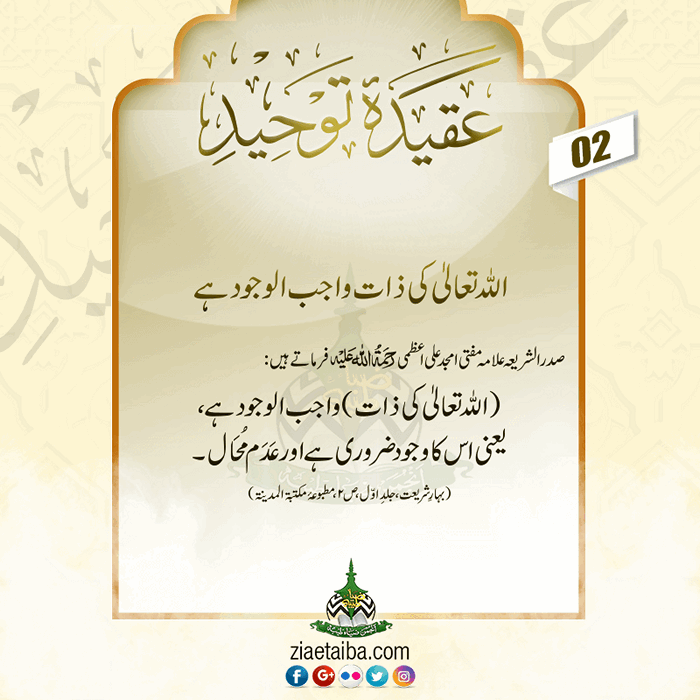 عقیدَۃ توَحِیدِ
02
اللہ تعالیٰ کی ذات واجب الوجود ہے
صدر الشریعہ علامہ مفتی امجد علی اعظمی رَحْمَۃُ اللہِ عَلَیْہ فرماتے ہیں:
(اللہ تعالیٰ کی ذات) واجب الوجود ہے،
یعنی اس کا وجود ضروری ہے اور عَدَم مُحَال۔
(بہارِ شریعت، جلدِ اوّل، ص۲، مطبوعۂ مکتبۃ المدینۃ)
ziaetaiba.com